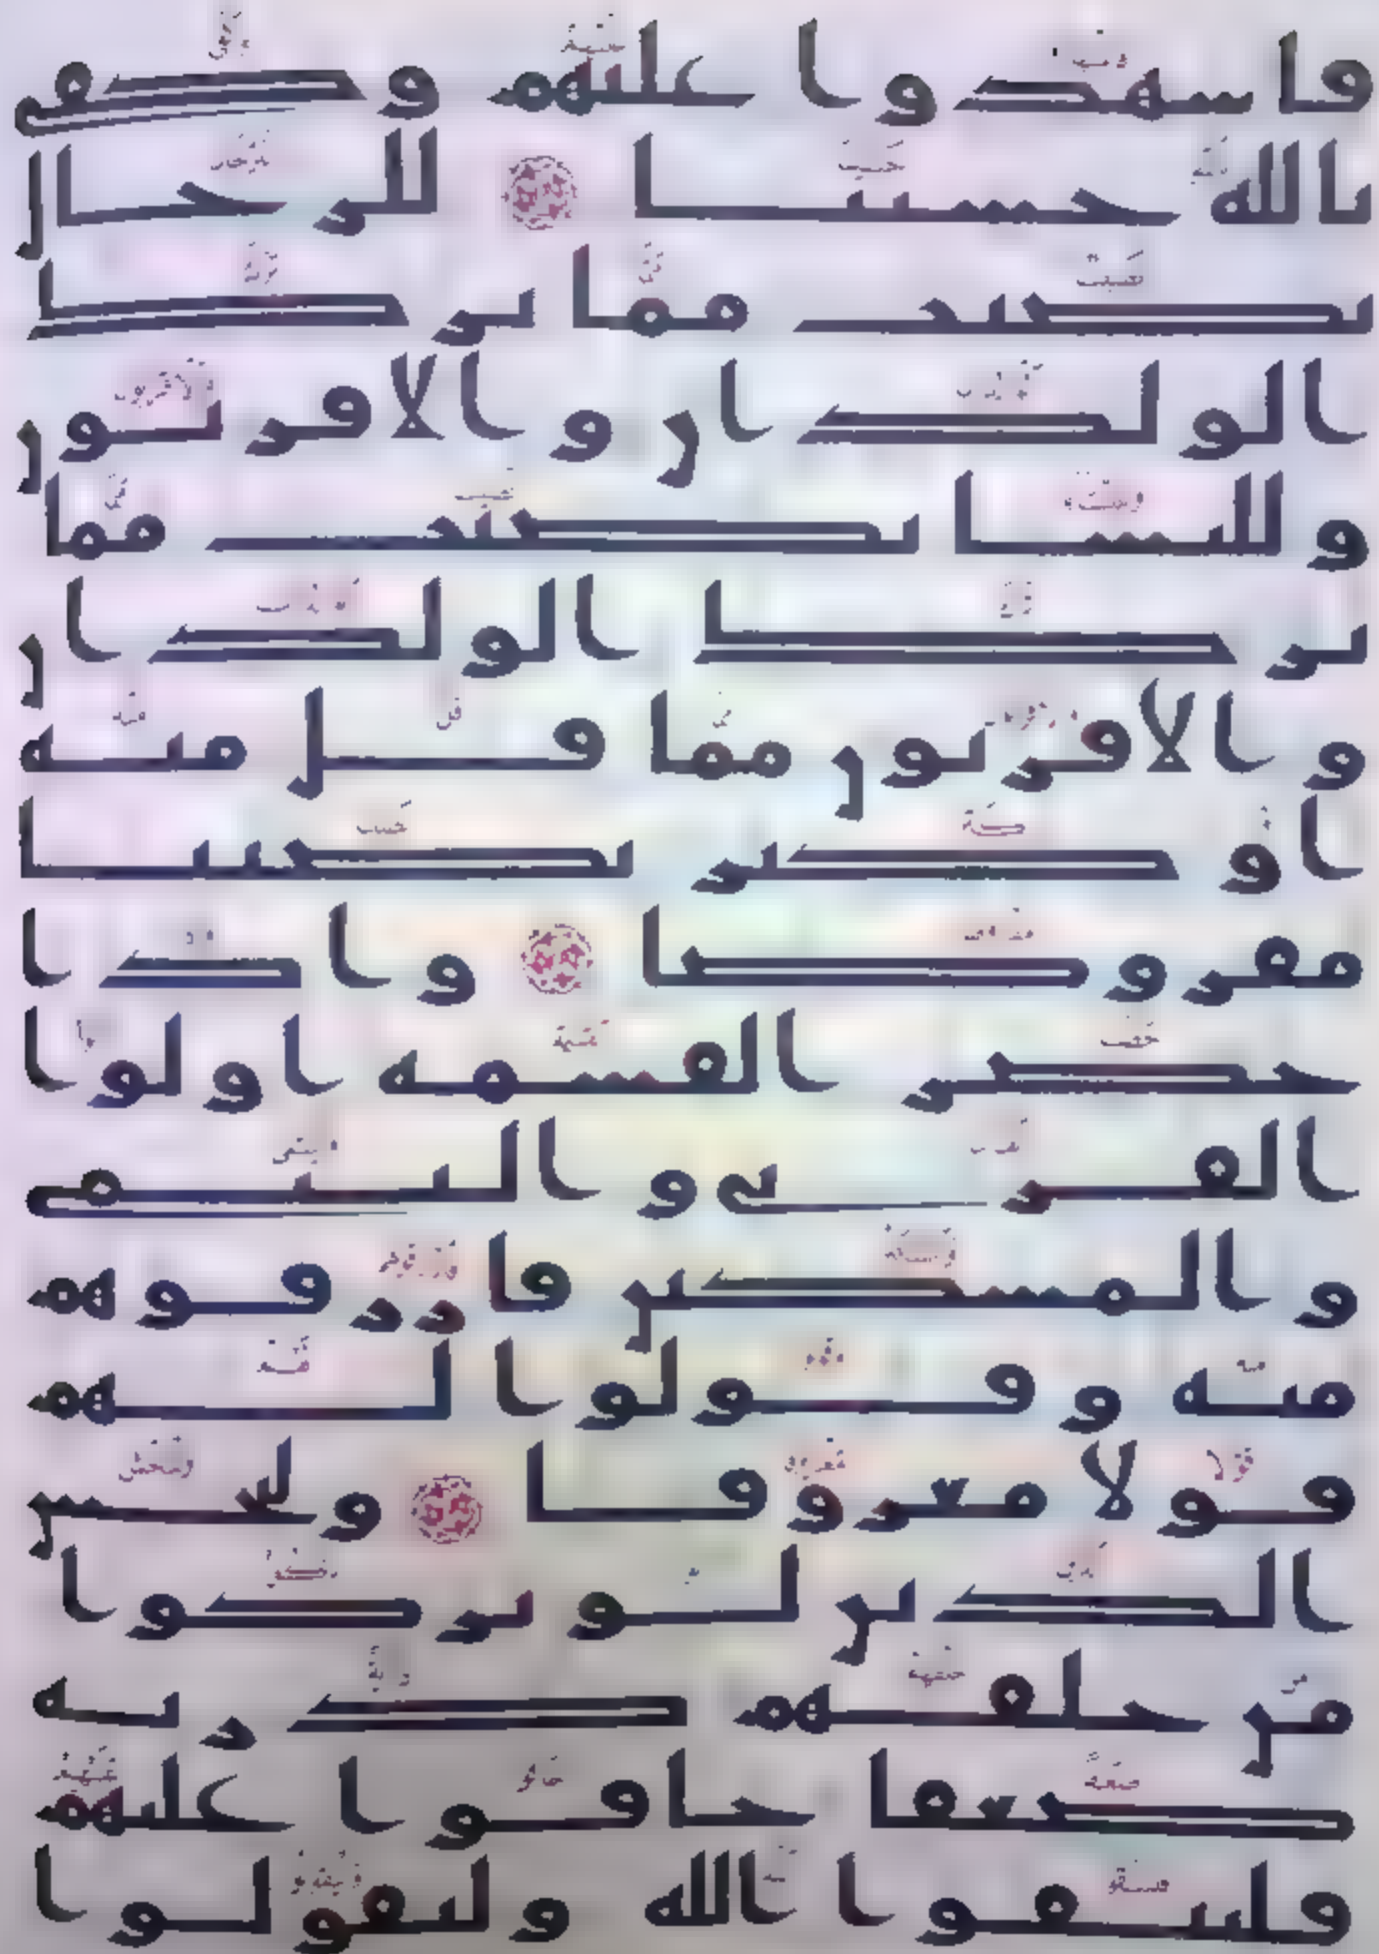 فاشهدوا عليهم وكفى
بالله حسيبا ۝ للرجال
نصيب مما ترك
الولدان والاقربون
وللنسا نصيب مما
ترك الولدان
والاقربون مما قل منه
او كثر نصيبا
مفروضا ۝ واذا
حضر القسمة اولوا
القربى واليتمى
والمسكين فارزقوهم
منه وقولوا لهم
قولا معروفا ۝ وليخش
الذين لو تركوا
من خلفهم ذرية
ضعفا خافوا عليهم
فليتقوا الله وليقولوا